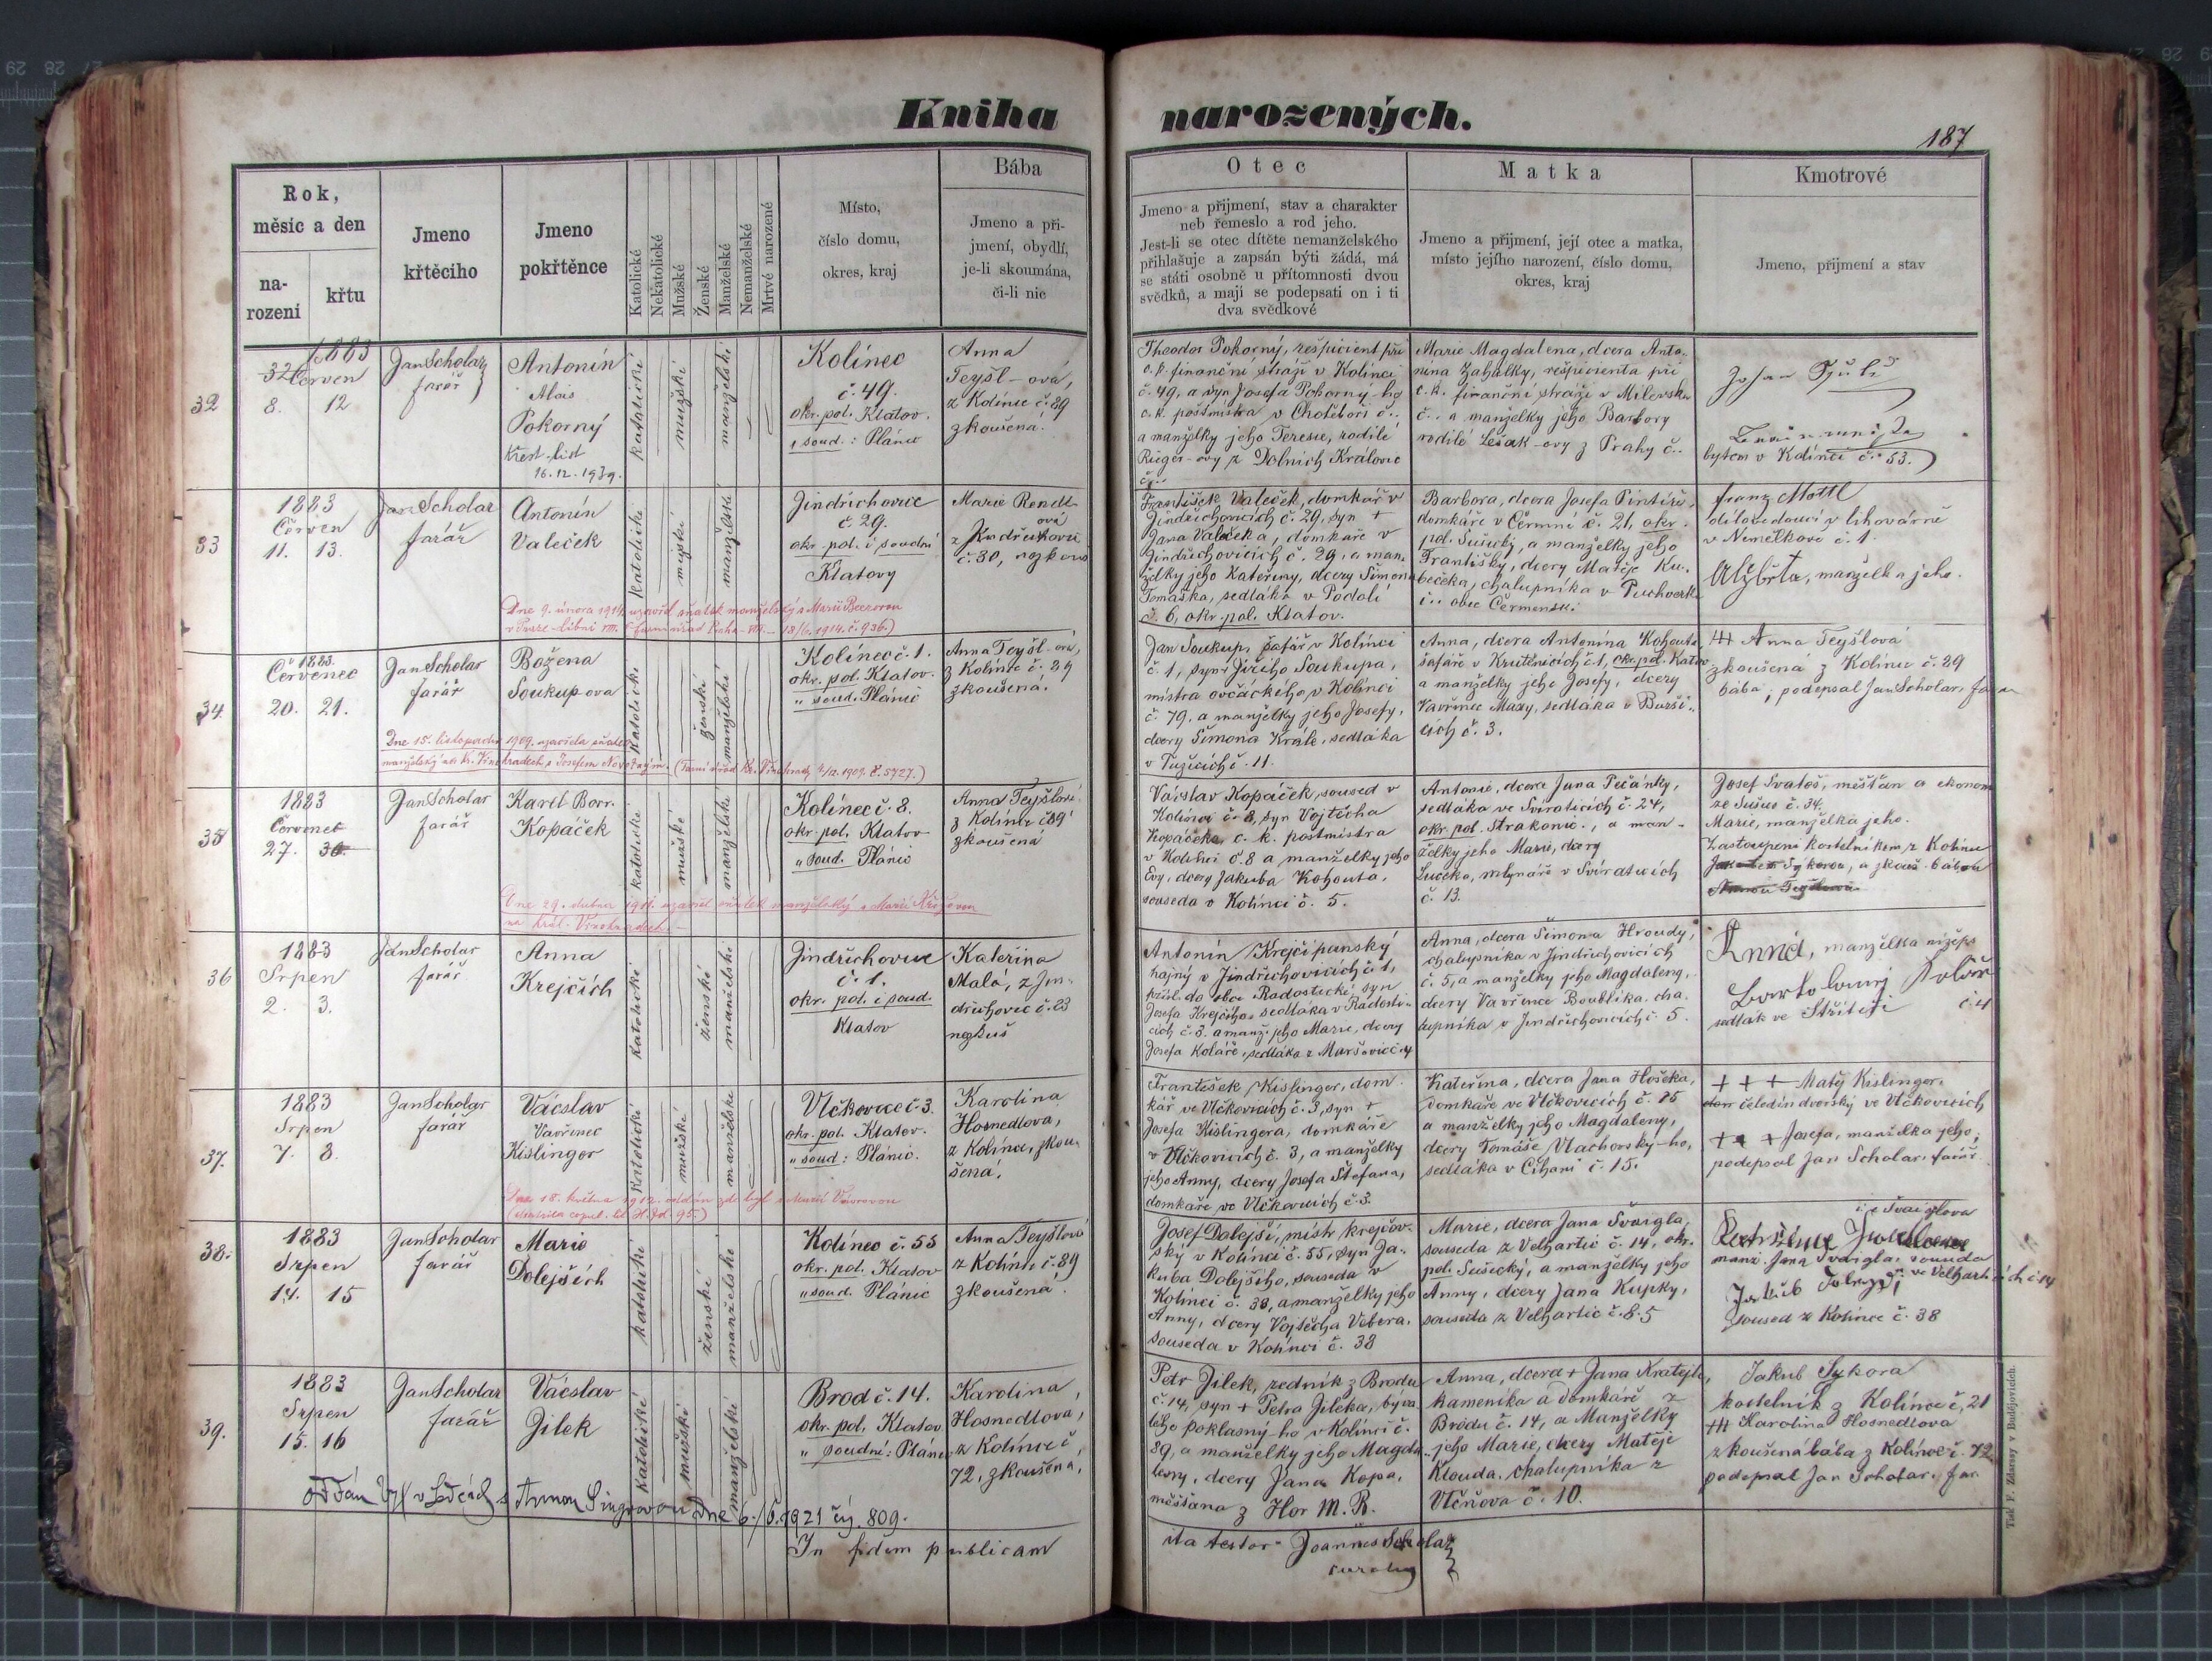 Kniha narozených.
187
Rok,
měsíc a den
na-
rození
křtu
Jmeno
křtěcího
Jmeno
pokřtěnce
Katolické
Nekatolické
Mužské
Ženské
Manželské
Nemanželské
Mrtvé narozené
Místo,
číslo domu,
okres, kraj
Bába
Jmeno a při-
jmení, obydlí,
je-li skoumána,
či-li nic
Otec
Jmeno a příjmení, stav a charakter
neb řemeslo a rod jeho.
Jest-li se otec dítěte nemanželského
přihlašuje a zapsán býti žádá, má
se státi osobně u přítomnosti dvou
svědků, a mají se podepsati on i ti
dva svědkové
Matka
Jmeno a příjmení, její otec a matka,
místo jejího narození, číslo domu,
okres, kraj
Kmotrové
Jmeno, příjmení a stav
32
1883
Červen
8. 12
Jan Scholar
farář
Antonín
Alois
Pokorný
Křest. list
16.12.1939.
katolické
mužské
manželské
Kolínec
č. 49.
okr. pol. Klatov.
" soud.: Plánic
Anna
Teyšl-ová,
z Kolínce č. 89
zkoušená.
Theodor Pokorný, rešpicient při
c. k. finanční stráži v Kolínci
č. 49, a syn Josefa Pokorný-ho
c. k. poštmistra v Chotěboři č..
a manželky jeho Teresie, rodilé
Rieger-ovy z Dolních Královic
č..
Marie Magdalena, dcera Anto-
nína Zahálky, respicienta při
c. k. finanční stráži v Milevsku
č.. a manželky jeho Barbory
rodilé Lešak-ovy z Prahy č..
Johan
bytem v Kolínci č. 53.
33
1883
Červen
11. 13.
Jan Scholar
farář
Antonín
Valeček
katolické
mužské
manželské
Jindřichovice
č. 29.
okr. pol. i soudní
Klatovy
Marie Rendl-
ová
z Jindřichovic
č. 30, nezkouš
František Valeček, domkář v
Jindřichovicích č. 29, syn +
Jana Valečka, domkáře v
Jindřichovicích č. 29, a man-
želky jeho Kateřiny, dcery Šimona
Tomáška, sedláka v Podolí
č. 6, okr. pol. Klatov.
Barbora, dcera Josefa Pintíře,
domkáře v Čermné č. 21, okr.
pol. Sušický, a manželky jeho
Františky, dcery Matěje Ku-
bečeka, chalupníka v Puchverk
č.. obec Čermensk.
Franz Mottl
dílovedoucí v lihovárně
v Nemilkově č. 1.
Alžběta, manželka jeho.
Dne 9. února 1914 uzavřel sňatek manželský s Marií Beerovou
v Praze-Libni VIII. (farní úřad Praha-VIII. - 13/6. 1914. č. 936.)
34
1883.
Červenec
20. 21.
Jan Scholar
farář
Božena
Soukupova
katolické
ženské
manželské
Kolínec č. 1.
okr. pol. Klatov.
" soud. Plánic
Anna Teyšl-ová,
z Kolínce č. 89
zkoušená.
Jan Soukup, šafář v Kolínci
č. 1, syn Jiřího Soukupa,
mistra ovčáckého v Kolínci
č. 79, a manželky jeho Josefy,
dcery Šimona Krále, sedláka
v Tužicích č. 11.
Anna, dcera Antonína Kohouta
šafáře v Krutěnicích č. 1, okr. pol. Klatov
a manželky jeho Josefy, dcery
Vavřince Maxy, sedláka v Burši-
cích č. 3.
+++ Anna Teyšlová
zkoušená z Kolínce č. 89
bába, podepsal Jan Scholar, farář
Dne 15. listopadu 1909. uzavřela sňatek
manželský na K. Vinohradech s Josefem Novotným. (Farní úřad Kr. Vinohrady 4/12. 1909. č. 5727.)
35
1883
Červenec
27. 30.
Jan Scholar
farář
Karel Borr.
Kopáček
katolické
mužské
manželské
Kolínec č. 8.
okr. pol. Klatov
" soud. Plánic
Anna Teyšlová
z Kolínce č. 89
zkoušená
Václav Kopáček, soused v
Kolínci č. 8, syn Vojtěcha
Kopáčeka, c. k. poštmistra
v Kolínci č. 8 a manželky jeho
Evy, dcery Jakuba Kohouta,
souseda v Kolínci č. 5.
Antonie, dcera Jana Pečánky,
sedláka ve Sviraticích č. 24,
okr. pol. Strakonic., a man-
želky jeho Marie, dcery
Lucčka, mlynáře v Sviraticích
č. 13.
Josef Svatoš, měšťan a ekonom
ze Sušice č. 34.
Marie, manželka jeho.
Zastoupeni kostelníkem z Kolínce
Sýkorou, a zkouš. bábou
Annou Teyšlovou
Dne 29. dubna 1911. uzavřel sňatek manželský s Marií Křížovou
na Král. Vinohradech. -
36
1883
Srpen
2. 3.
Jan Scholar
farář
Anna
Krejčích
katolické
ženské
manželské
Jindřichovice
č. 1.
okr. pol. i soud.
Klatov
Kateřina
Malá, z Jin-
dřichovic č. 23
nezkuš
Antonín Krejčí panský
hajný v Jindřichovicích č. 1,
přísl. do obce Radostické, syn
Josefa Krejčího sedláka v Radosti-
cích č. 3. a manž. jeho Marie, dcery
Josefa Koláře, sedláka z Maršovic č. 4
Anna, dcera Šimona Hroudy,
chalupníka v Jindřichovicích
č. 5, a manželky jeho Magdaleny,
dcery Vavřince Boublíka, cha-
lupníka v Jindřichovicích č. 5.
Anna, manželka nížeps
Bartolomej Kolář
sedlák ve Střítěži č. 4
37.
1883
Srpen
7. 8.
Jan Scholar
farář
Václav
Vavřinec
Kislinger
katolické
mužské
manželské
Vlčkovice č. 3.
okr. pol. Klatov.
" soud: Plánic.
Karolina
Hosnedlova,
z Kolínce, zkou-
šená.
František Kislinger, dom-
kář ve Vlčkovicích č. 3, syn +
Josefa Kislingera, domkáře
v Vlčkovicích č. 3, a manželky
jeho Anny, dcery Josefa Štefana,
domkáře ve Vlčkovicích č. 3.
Kateřina, dcera Jana Hošeka,
domkáře ve Vlčkovicích č. 15
a manželky jeho Magdaleny,
dcery Tomáše Vlachovsky-ho,
sedláka v Cihaní č. 15.
+ + + Matěj Kislinger,
čeledín dvorský ve Vlčkovicích
+ + + Josefa, manželka jeho,
podepsal Jan Scholar, farář
Dne 18. května 1912. oddán zde byl s Marií Vavrovou
38.
1883
Srpen
14. 15
Jan Scholar
farář
Marie
Dolejších
katolické
ženské
manželské
Kolínec č. 55
okr. pol. Klatov
" soud. Plánic
Anna Teyšlová
z Kolínce č. 89
zkoušená.
Josef Dolejší, mistr krejčov-
ský v Kolínci č. 55, syn Ja-
kuba Dolejšího, souseda v
Kolínci č. 38, a manželky jeho
Anny, dcery Vojtěcha Vebera,
souseda v Kolínci č. 38
Marie, dcera Jana Švaigla,
souseda z Velhartic č. 14, okr.
pol. Sušický, a manželky jeho
Anny, dcery Jana Kupky,
souseda z Velhartic č. 8. 5
Švaiglova
manž. Jana Švaigla, souseda
ve Velharticích č. 14
Jakub Dolejší,
soused z Kolínce č. 38
39.
1883
Srpen
15. 16
Jan Scholar
farář
Václav
Jílek
katolické
mužské
manželské
Brod č. 14.
okr. pol. Klatov
" soudní: Plánic
Karolina,
Hosnedlova,
z Kolínce č.
72, zkoušena,
Petr Jílek, zedník z Brodu
č. 14, syn + Petra Jíleka, býva-
lého poklasný-ho v Kolínci č.
89, a manželky jeho Magda-
leny, dcery Jana Kopa,
měšťana z Hor M. R.
Anna, dcera + Jana Kratejla,
kameníka a domkáře z
Brodu č. 14, a Manželky
jeho Marie, dcery Matěje
Klouda, chalupníka z
Vlčňova č. 10.
Jakub Sýkora
kostelník z Kolínce č. 21
+++ Karolina Hosnedlova
zkoušená bába z Kolínce č. 72
podepsal Jan Scholar, far
oddán byl v s Annou Singrovou dne 6./6. 1921 čj. 809.
In fidem publicam
ita testor Joannes Scholar
curatus
Tisk F. Zdarssy v Budějovicích.